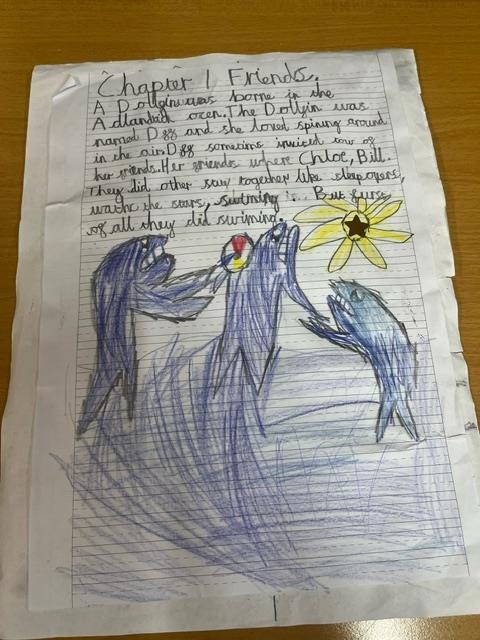 Chapter 1 Friends.
A Dollgin was borne in the
Adlandick ocen. The Dollgin was
named Dgg and she loved spining around
in the air. Dgg somtims invited tow of
her friends. Her friends where Chloe, Bill.
They did other stuff together like sleepovers,
wacth the stars, swiming ... But furst
of all they did swiming.